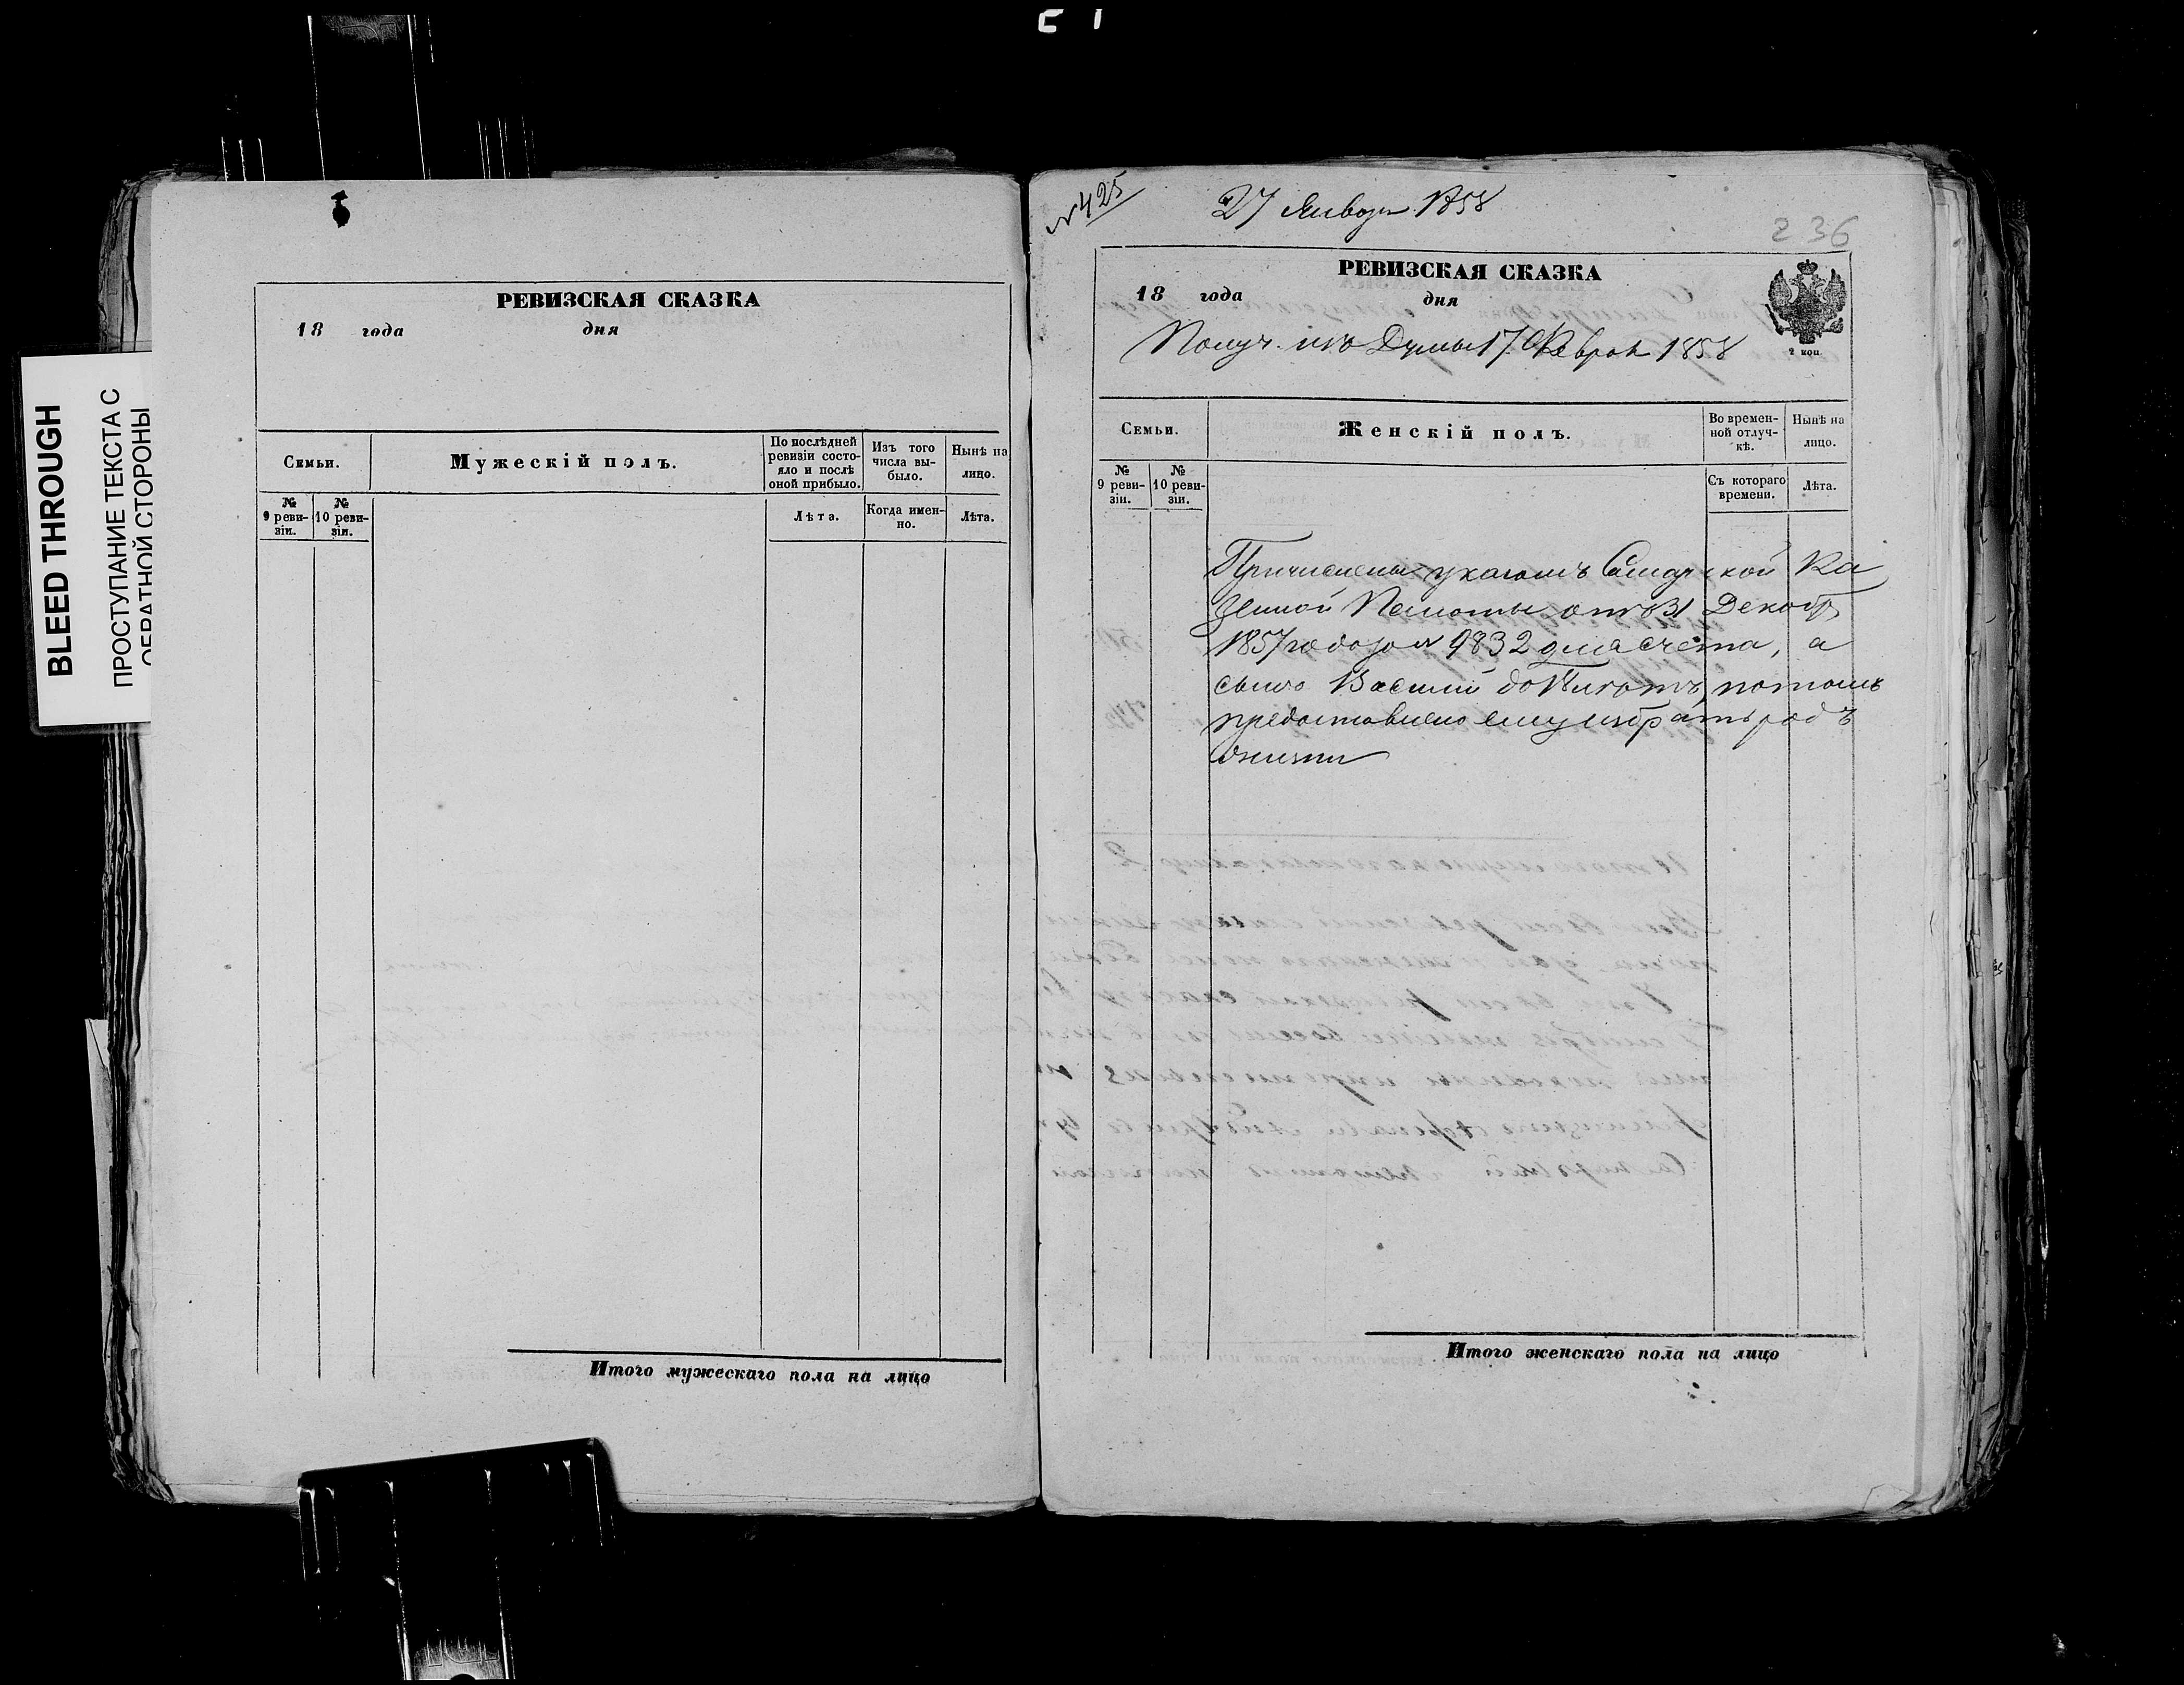 BLEED THROUGH
ПРОСТУПАНИЕ ТЕКСТА С
ОБРАТНОЙ СТОРОНЫ
РЕВИЗСКАЯ СКАЗКА
18 года дня
Семьи.
Мужескій полъ.
По послѣдней ревизіи состояло и послѣ оной прибыло.
Изъ того числа выбыло.
Нынѣ на лицо.
№ 9 ревизіи.
№ 10 ревизіи.
Лѣта.
Когда именно.
Лѣта.
Итого мужескаго пола на лицо
№ 425
27 Января 1858
236
РЕВИЗСКАЯ СКАЗКА
18 года дня
2 коп.
Получ. изъ Думы 17 Феврал 1858
Семьи.
Женскій полъ.
Во временной отлучкѣ.
Нынѣ на лицо.
№ 9 ревизіи.
№ 10 ревизіи.
Съ котораго времени.
Лѣта.
Причислены указомъ Самарской Ка
зенной Палаты отъ 31 Декабр
1857 года за № 9832 для счета, а
сынъ Василій потомъ
предоставлено ему избрать родъ
жизни
Итого женскаго пола на лицо